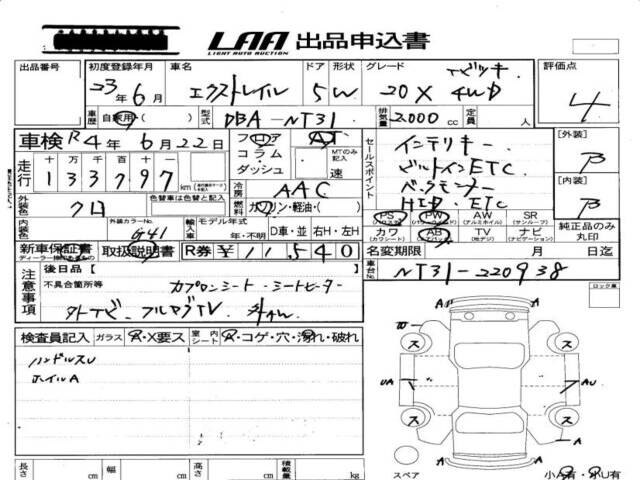 LAA 出品申込書
LIGHT AUTO AUCTION
出品番号 初度登録年月 車名 ドア 形状 グレード 評価点
23年6月 エクストレイル 5 W 20X 4WD 4
車歴 自家用( ) 型式 DBA-NT31 排気量 2,000cc 定員 人
車検 R4年6月22日 フロア コラム・ダッシュ AT MTのみ記入 速
走行 十万千百十一 133797 km
セールスポイント インテリキー
ビルトインETC
バックモニター
ETC
[外装] B
[内装] B
冷房 AAC
外装色 クロ 色替車は色替と記入
燃料 ガソリン・軽油・( )
PS (パワステ) PW (パワーウインドウ) AW (アルミホイル) SR (サンルーフ)
カワ (カワシート) AB (エアバック) TV (地デジ) ナビ (ナビゲーション)
純正品のみ丸印
内装色 外装カラーNo. G41 輸入車 モデル年式 年・不明 D車・並 右H・左H
新車保証書 取扱説明書 R券 ¥11,540
名変期限 月 日迄
車台No. NT31-220938
注意事項 後日品( )
不具合箇所等 カプロンシート シートヒーター
検査員記入 ガラス A・X要ス 室内シート A・コゲ・穴・汚れ・破れ
ロック車
ハンドルスU
ホイルA
A A
W ス ス
UA AU
ス ス
A A A
スペア 小A有・小U有
長さ cm 幅 cm 高さ cm 積載量 kg